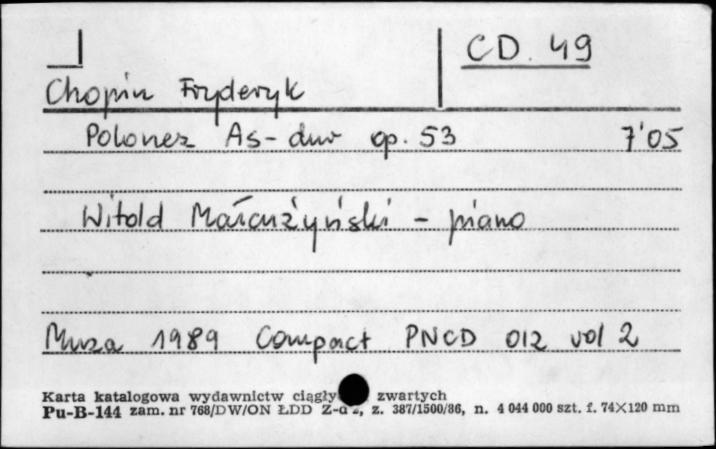 CD. 49
Chopin Fryderyk
Polonez As-dur op. 53 7'05
Witold Małcużyński - piano
Muza 1989 Compact PNCD 012 vol 2
Karta katalogowa wydawnictw ciągły zwartych
Pu-B-144 zam. nr 768/DW/ON ŁDD z. 387/1500/86, n. 4 044 000 szt. f. 74×120 mm